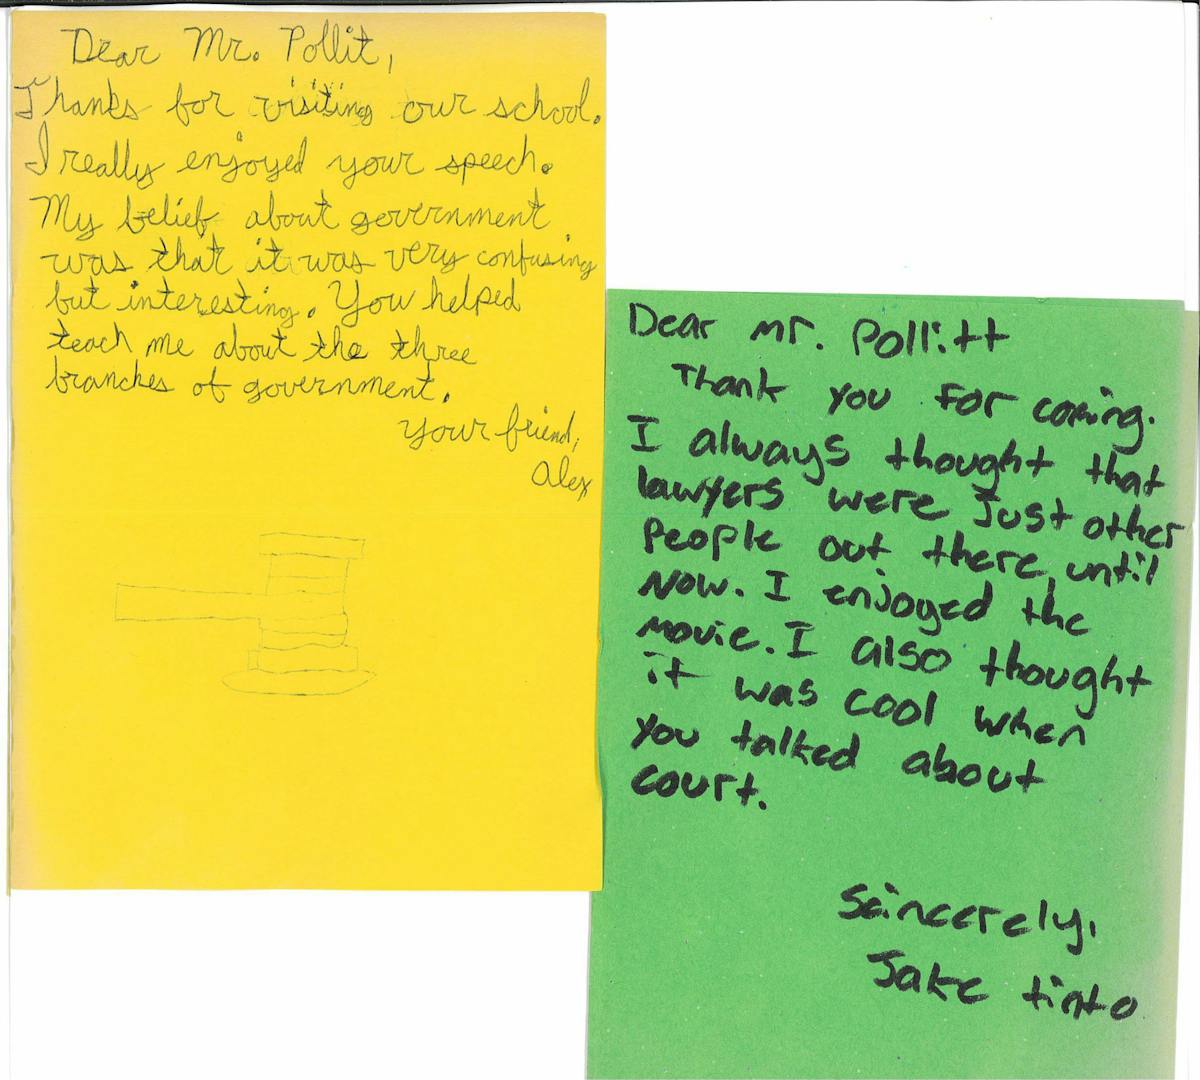 Dear Mr. Pollit,
Thanks for visiting our school.
I really enjoyed your speech.
My belief about government
was that it was very confusing
but interesting. You helped
teach me about the three
branches of government.
Your friend,
Alex
Dear mr. Pollitt
Thank you for coming.
I always thought that
lawyers were Just other
People out there, until
Now. I enjoyed the
movie. I also thought
it was cool when
you talked about
court.
Sincerely,
Jake tinto